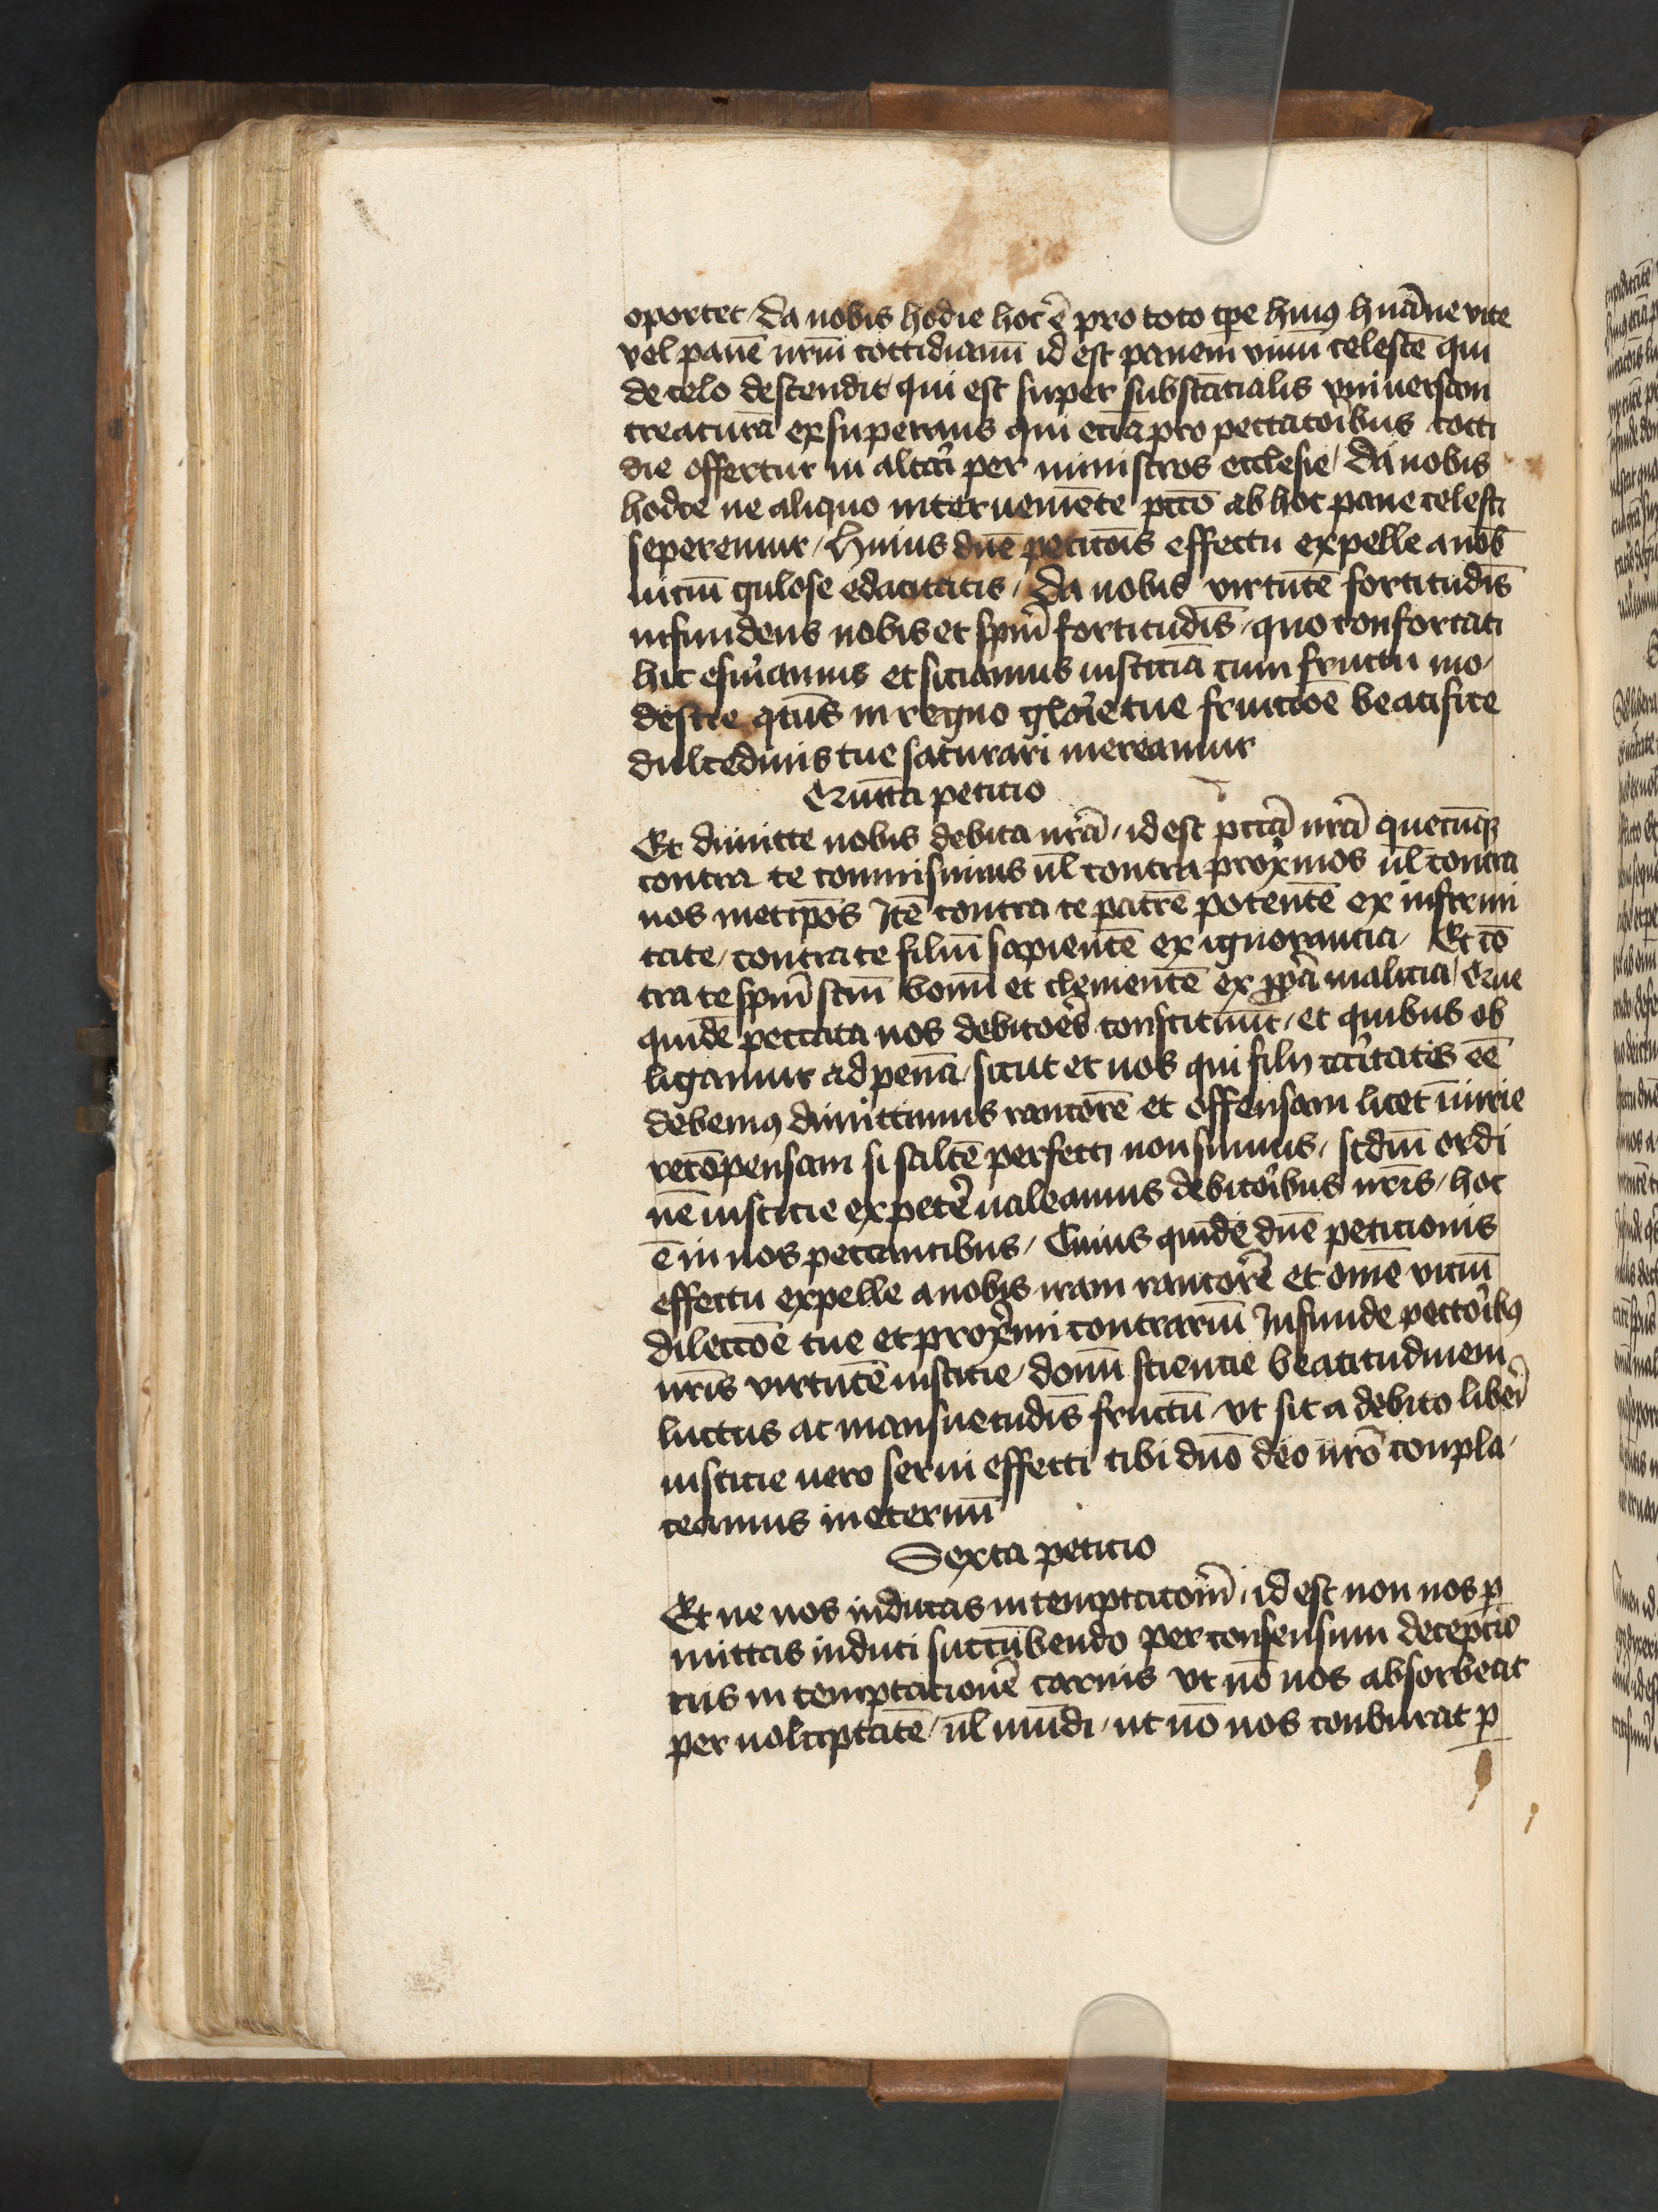 oportet / Da nobis hodie hoc ē pro toto tpe huiꝰ huāne vite
vel panē nrm̄ cottidianū id est panem viuū celestē qui
de celo descendit / qui est super substācialis vniuersam
creaturā exsuperans qui eciā pro peccatoībus cotti
die offertur in altari per ministros ecclesie / Da nobis
hodie ne aliquo interueniēte pctō ab hoc pane celesti
seperemur / Huius dnē peticōis effectu expelle a nob̄
uiciū gulose edacitatis / Da nobis virtutē fortitudīs
infundens nobis et spm̄ fortitudīs / quo confortati
hic esuriamus et siciamus iusticiā cum fructu mo /
destie qtūs in regno glorie tue fruicōe beatifice
dulcedinis tue saturari mereamur
Quinta peticio
Et dimitte nobis debita nrā / id est pctā nrā quecūqꝫ
contra te commisimus ūl contra proximos ūl contra
nos metip̄os Itē contra te patrē potentē ex infirmi
tate / contra te filiū sapientē ex ignorancia / Et cō
tra te spm̄ sctm̄ bonū et clementē ex ꝓpa malicia / Que
quidē peccata nos debitoēs constituūt / et quibus ob
ligamur ad penā / sicut et nos qui filij caritatis eē
debemꝰ dimittimus rancorē et offensam licet iniurie
recōpensam si saltē perfecti non sumus / scdm̄ ordi
nē iusticie expetere ualeamus debitoībus nrīs / hoc
ē in nos peccantibus / Cuius quidē dnē peticionis
effectu expelle a nobis iram rancorē et omē viciū
dilectōe tue et proximi contrariū Infunde pectoībꝰ
nrīs virtutē iusticie / donū sciencie beatitudinem
luctus ac mansuetudīs fructū / vt sic a debito liberi
iusticie uero serui effecti tibi dnō deo nrō conpla /
ceamus in eternū
Sexta peticio
Et ne nos inducas in temptacionē / id est non nos ꝑ
mittas induci succūbendo per consensum decepcio
nis in temptacionē carnis vt nō nos absorbeat
per uoluptatē / ūl mūdi / ut nō nos conburat ꝑ